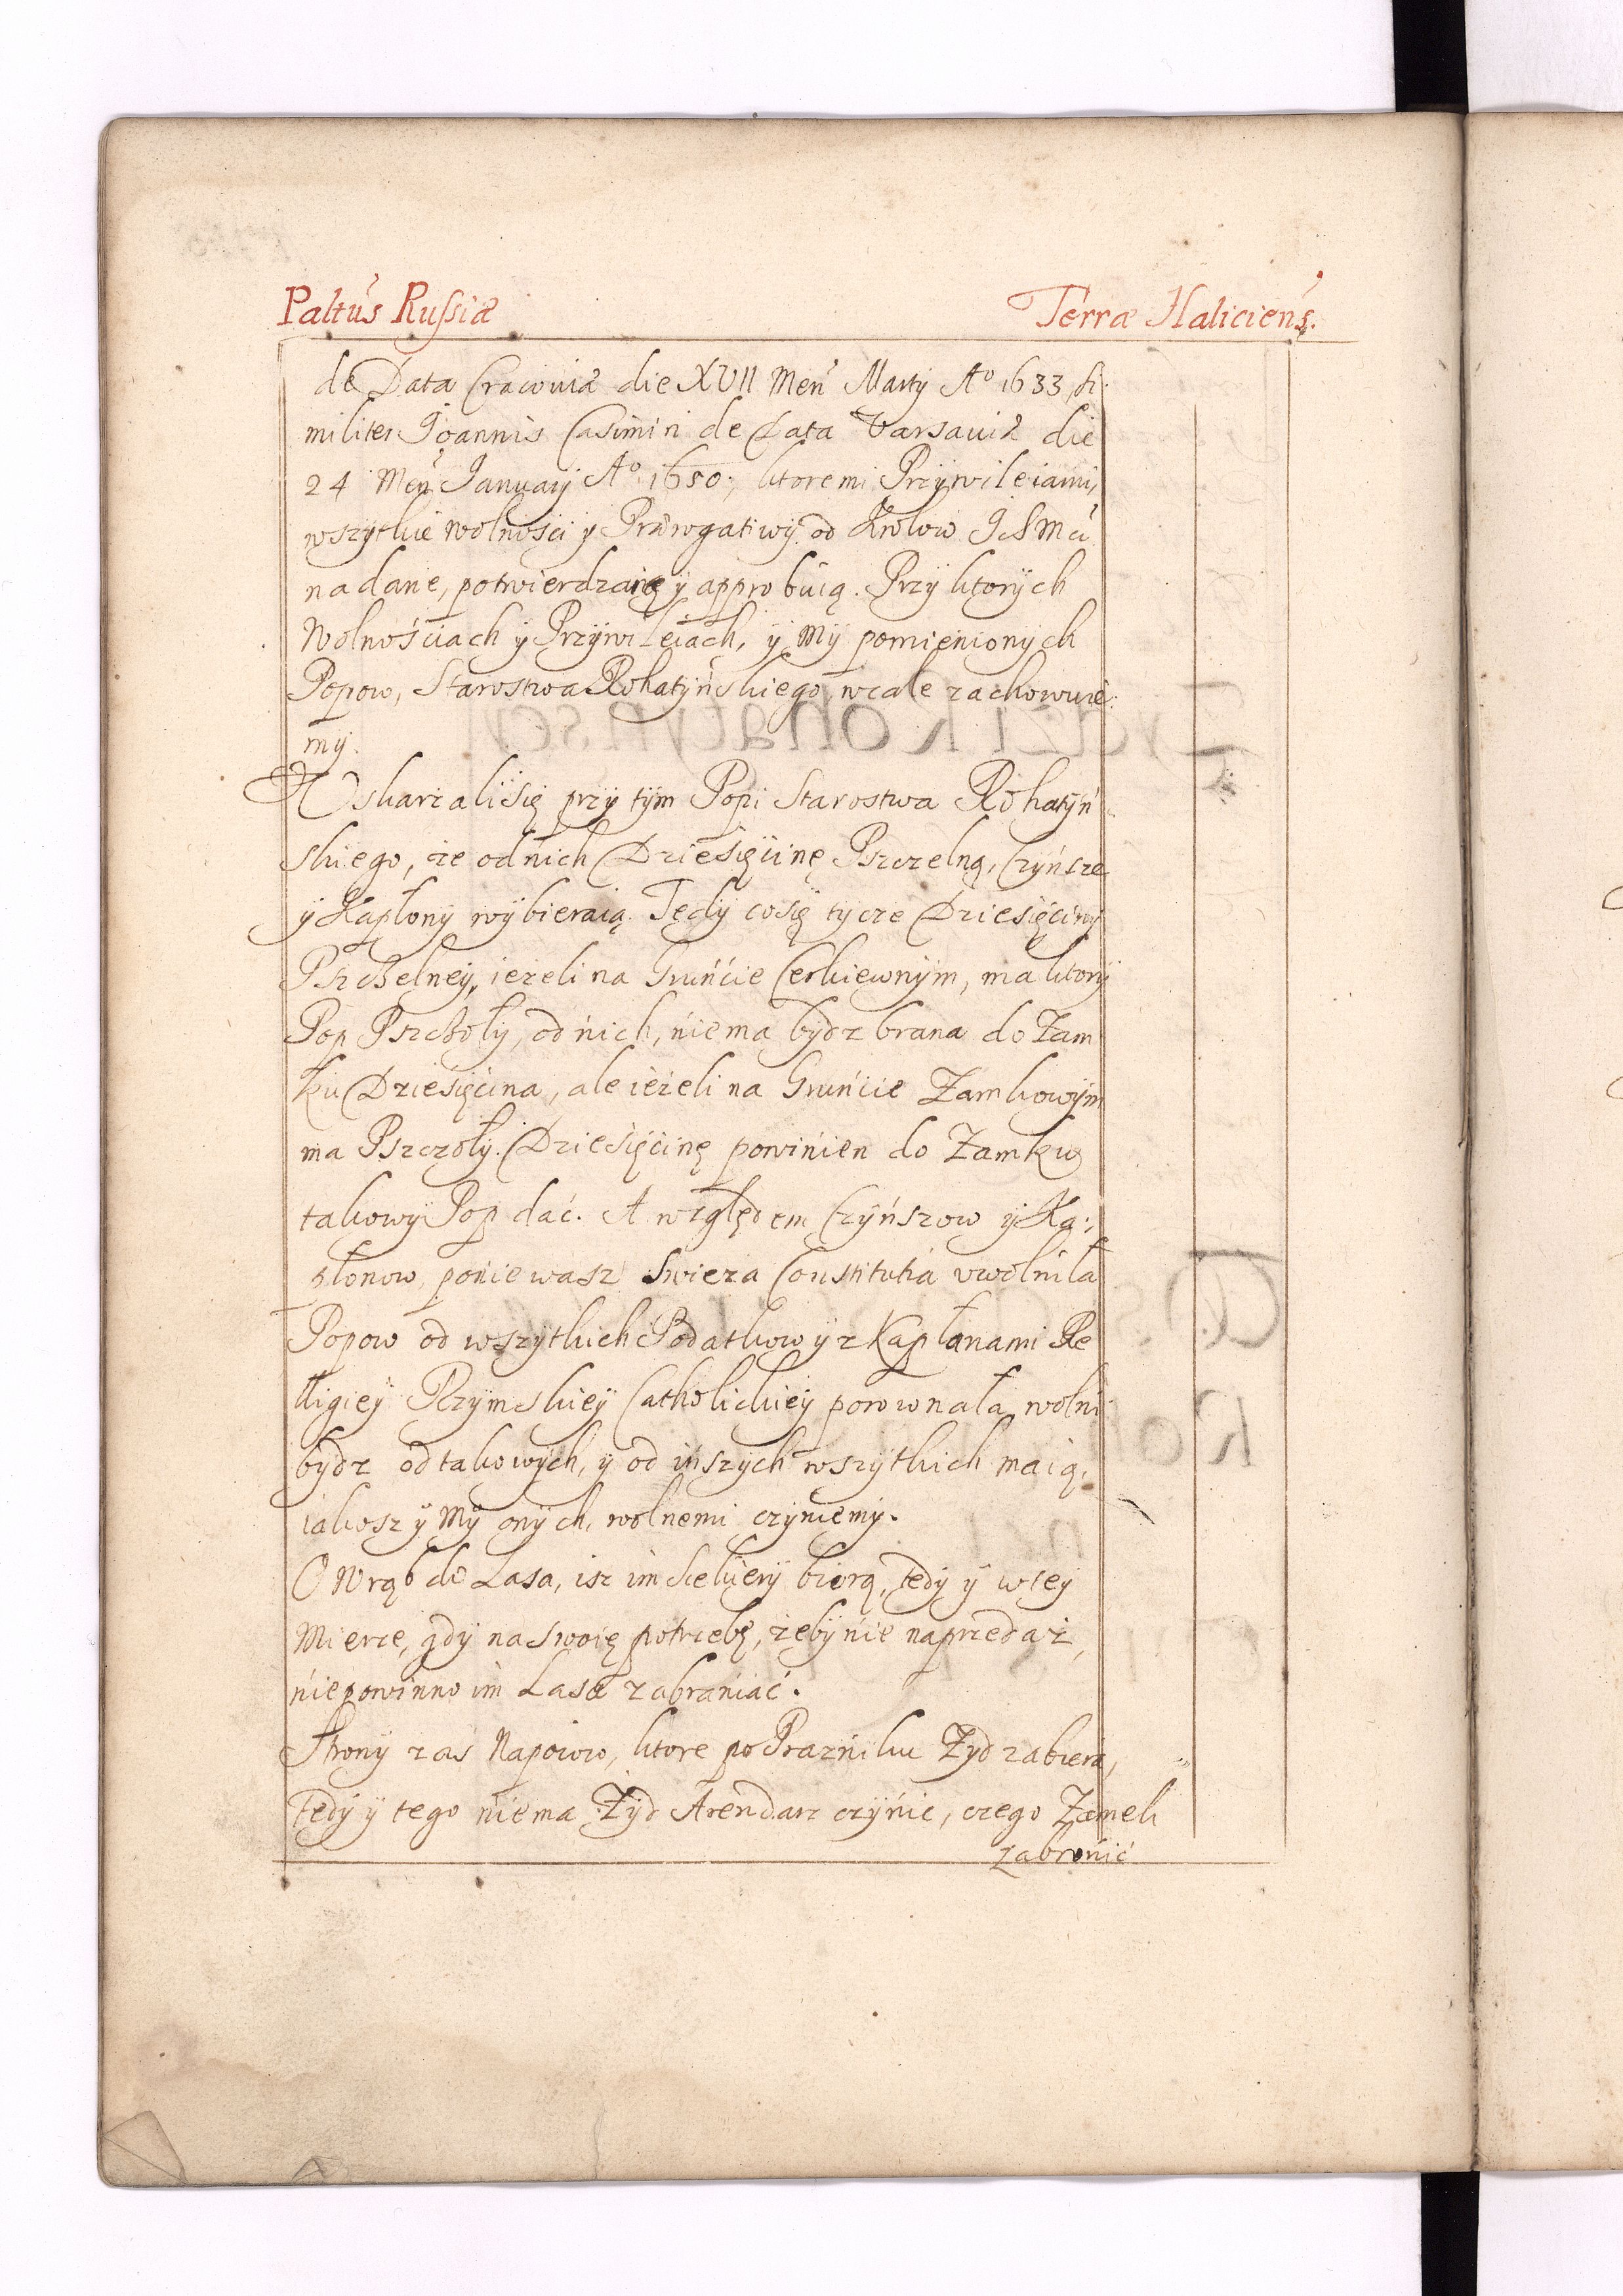 Paltûs Russiæ Terræ Haliciens.
de Data Cracoviæ die XVII Men Martÿ A° 1633, si:
militer Joannis Casimiri de Data Varsaviæ die
24 Men Januarÿ A° 1650; ktoremi Przÿwileiami,
wszÿtkie wolnosci ÿ Prærogatiwÿ od Krolow
nadane, potwierdzaią ÿ approbuią. Przÿ ktorÿch
Wolnościach ÿ Przÿwileiach, ÿ Mÿ pomienionÿch
Popow, Starostwa Rohatÿńskiego, wcale zachowuie:
mÿ.
Uskarzali się przÿ tÿm Popi Starostwa Rohatÿń
skiego, że od nich Dziesięcinę Pszczelną, Czÿńsze
ÿ Kapłonÿ wÿbieraią. Tędÿ co się tÿcze Dziesięcinÿ
Pszczelneÿ, ieżeli na Gruńcie Cerkiewnÿm, ma ktorÿ
Pop Pszczołÿ, od nich, nie ma bÿdz brana do Zam
ku Dziesięcina, ale ieżeli na Gruńcie Zamkowÿm
ma Pszczołÿ. Dziesięcinę powinien do Zamku
takowÿ Pop dać. A względem Czÿńszow ÿ Ka:
płonow, poniewasz swieza Constitutia vwolniła
Popow od wszÿtkich Podatkow ÿ z Kapłanami Re
lligieÿ Rzÿmskieÿ Catholickieÿ porownała, wolni
bÿdz od takowÿch, ÿ od inszÿch wszÿtkich maią,
iakosz ÿ Mÿ onÿch, wolnemi czÿniemÿ.
O Wrąb do Lasa, isz im Siekierÿ biorą, tedÿ ÿ w teÿ
Mierze, gdÿ na swoię potrzebę, żebÿ nie na przedaż,
niepowinno im Lasa zabraniać.
Stronÿ zas Napoiow, ktore po Prazniku Żÿd zabiera,
tedÿ ÿ tego niema Żÿd Arendarz czÿnic, czego Zamek
zabronić